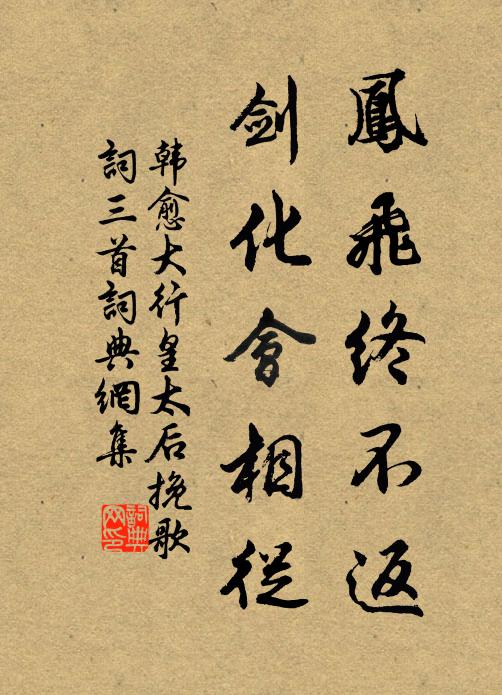 鳳飛終不返
劍化會相從
韩愈大行皇太后挽歌
詞三首詞典網集
詞典網印